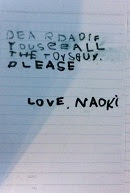 DEAR DAD IF
YOU SEE ALL
THE TOYS BUY.
PLEASE
LOVE, NAOKI